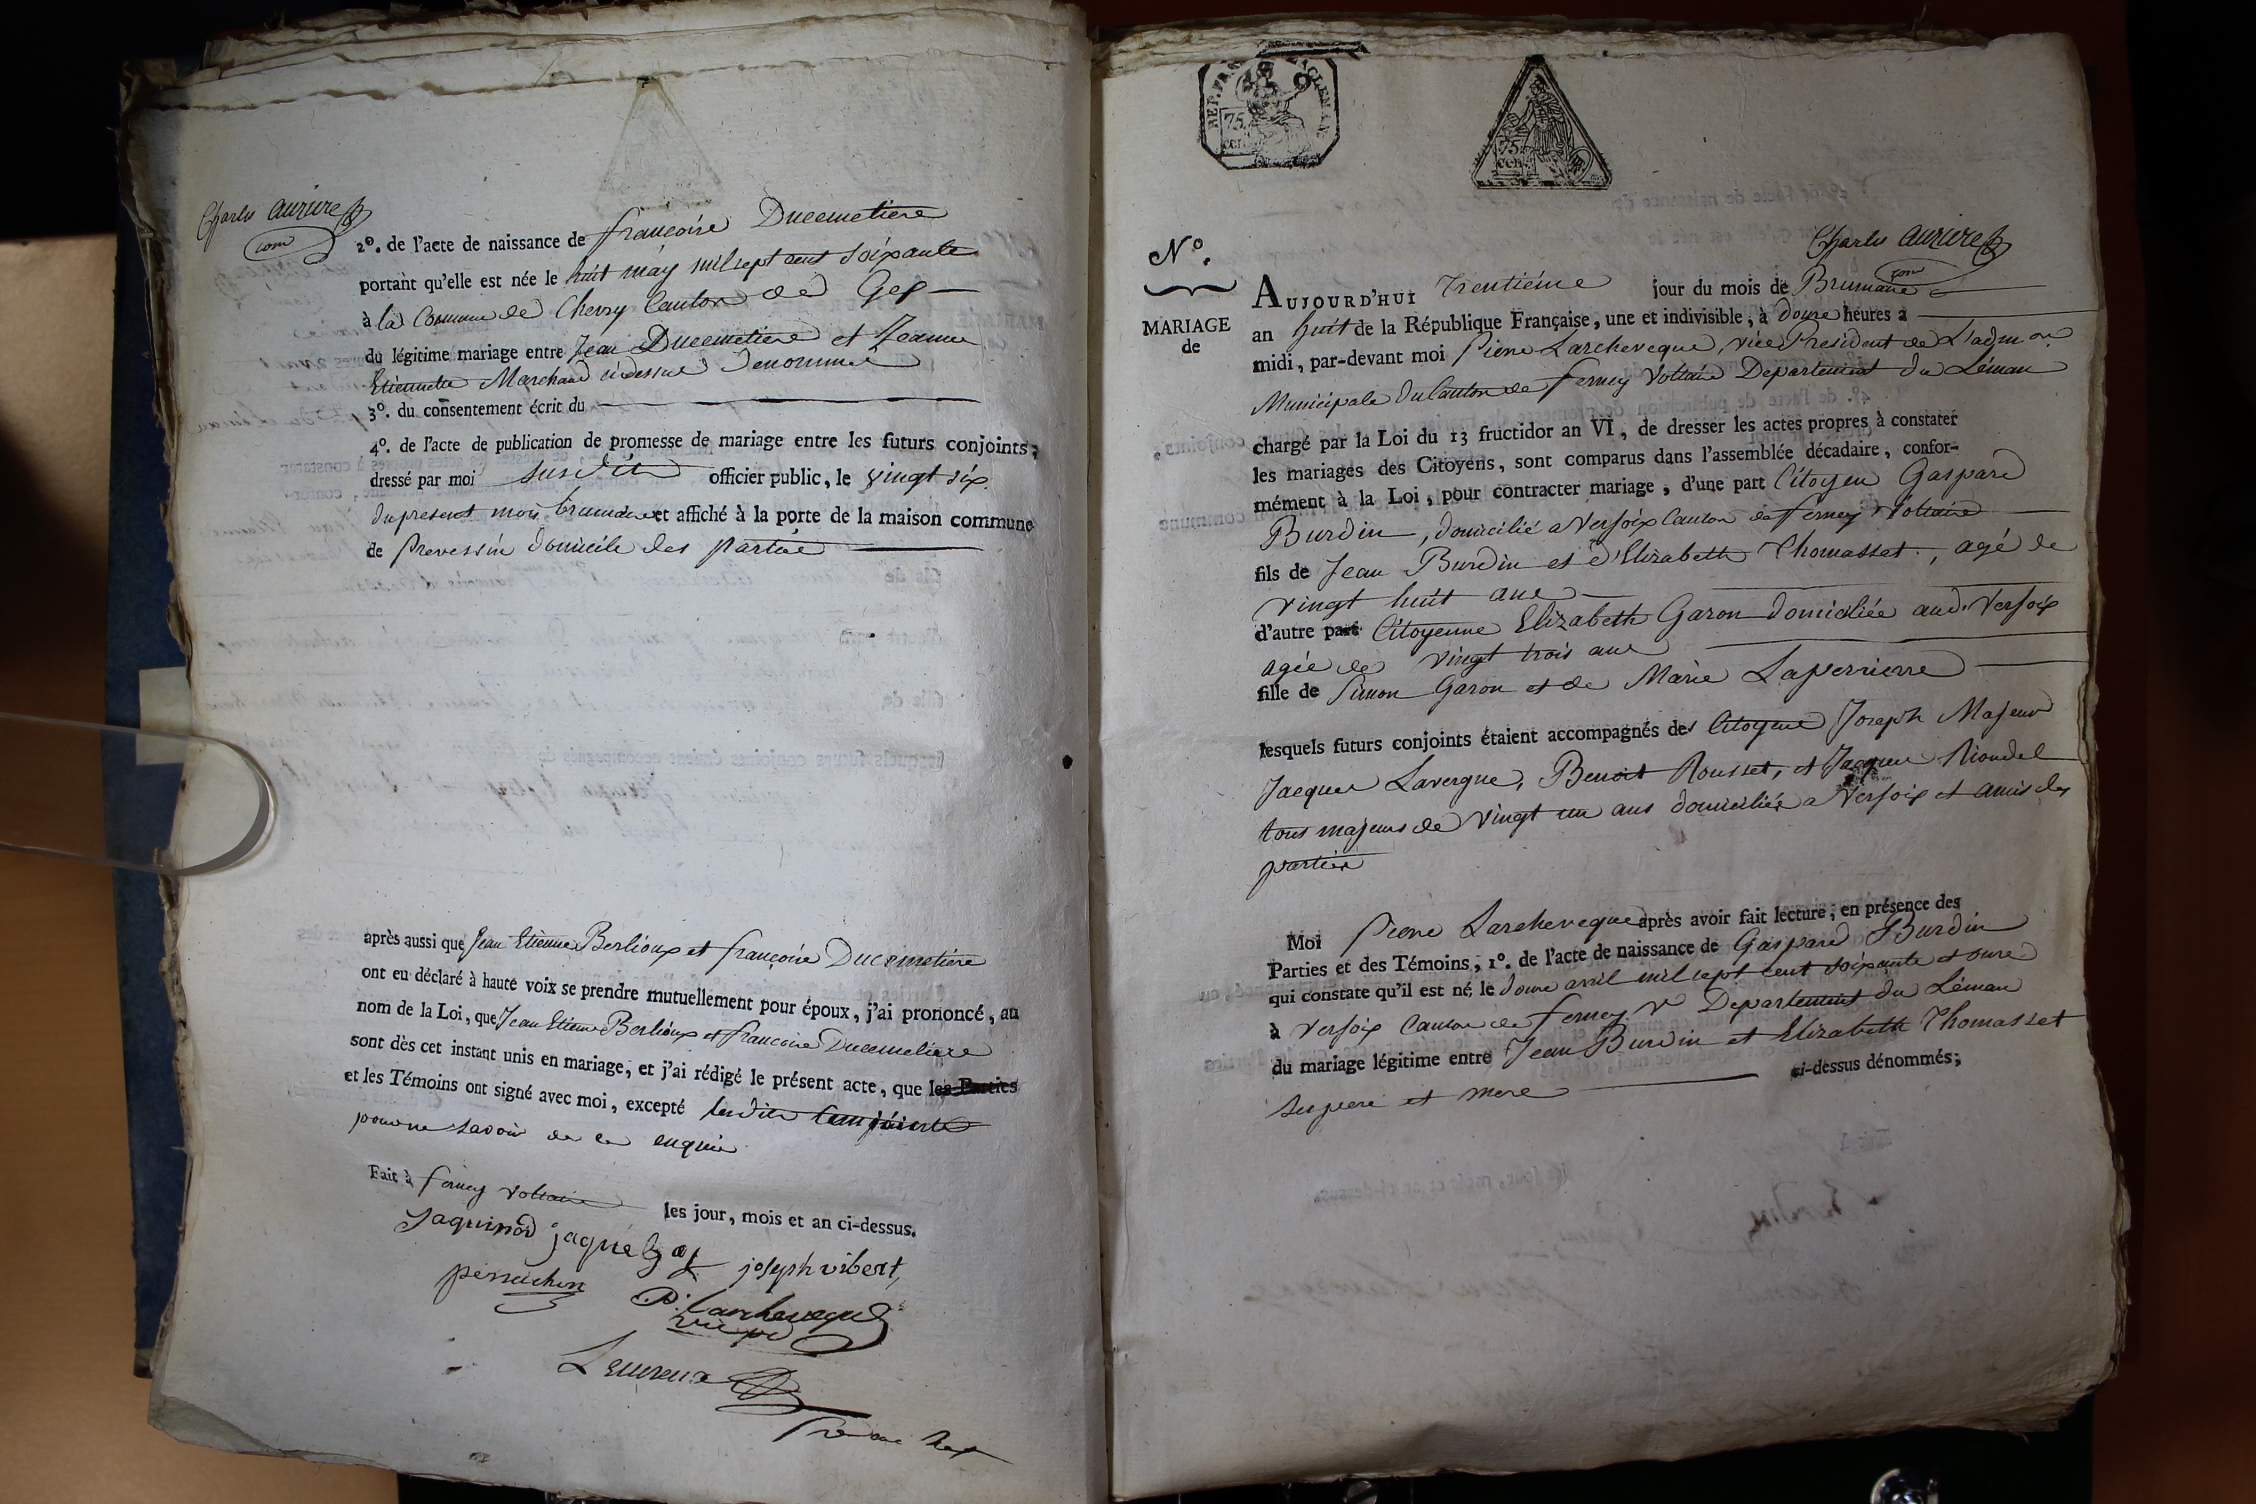 Charles auzière
com
2º. de l'acte de naissance de françoise Ducemetiere
portant qu'elle est née le huit may mil sept cent soixante
à la Commune de Chevry Canton de Gex
du légitime mariage entre Jean Ducemetiere et Jeanne
Etiennette Marchand cidessus denommé
3º. du consentement écrit du
4º. de l'acte de publication de promesse de mariage entre les futurs conjoints,
dressé par moi susdit officier public, le vingt six
du present mois brumaire et affiché à la porte de la maison commune
de Prevessin domicile des partie
après aussi que Jean Etienne Berlioux et françoise Ducemetiere
ont eu déclaré à haute voix se prendre mutuellement pour époux, j'ai prononcé, au
nom de la Loi, que Jean Etienne Berlioux et francoise Ducemetiere
sont dès cet instant unis en mariage, et j'ai rédigé le présent acte, que les Parties
et les Témoins ont signé avec moi, excepté lesdits Conjoints
pour ne savoir de ce enquis
Fait à ferney Voltaire les jour, mois et an ci-dessus.
Jaquinod
joseph vibert,
perrachon
P. Larcheveque
vice pd
REP. FRA
75.
cen
75.
cen
Nº.
MARIAGE
de
Charles auzière
com
AUJOURD'HUI Trentiéme jour du mois de Brumaire
an huit de la République Française, une et indivisible, à douze heures a
midi, par-devant moi Pierre Larcheveque, vice President de L'adm on
Municipale du Canton de ferney Voltaire Departement du Léman
chargé par la Loi du 13 fructidor an VI, de dresser les actes propres à constater
les mariages des Citoyens, sont comparus dans l'assemblée décadaire, confor-
mément à la Loi, pour contracter mariage, d'une part Citoyen Gaspard
Burdin, domicilié a Versoix Canton de ferney Voltaire
fils de Jean Burdin et d'Elizabeth Thomasset, agé de
vingt huit ans
d'autre part Citoyenne Elizabeth Garon domiciliée aud. Versoix
agée de vingt trois ans
fille de Simon Garon et de Marie Laperrierre
lesquels futurs conjoints étaient accompagnés des Citoyens Joseph Majeur
Jacques Lavergne, Benoit Rousset, et Jacques Riondel
tous majeurs de vingt un ans domiciliés a Versoix et amis des
parties
Moi Pierre Larcheveque après avoir fait lecture, en présence des
Parties et des Témoins, 1º. de l'acte de naissance de Gaspard Burdin
qui constate qu'il est né le douze avril mil sept cent soixante et onze
à Versoix Canton de ferney V Departement du Léman
du mariage légitime entre Jean Burdin et Elizabeth Thomasset
ci-dessus dénommés;
ses pere et mere